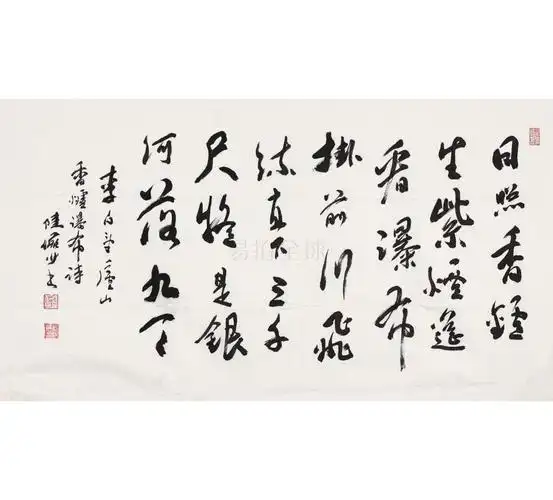 日照香鑪
生紫煙遥
看瀑布
掛前川飛
流直下三千
尺疑是銀
河落九天
李白望廬山
香爐瀑布詩
陸儼少書
易拍全球